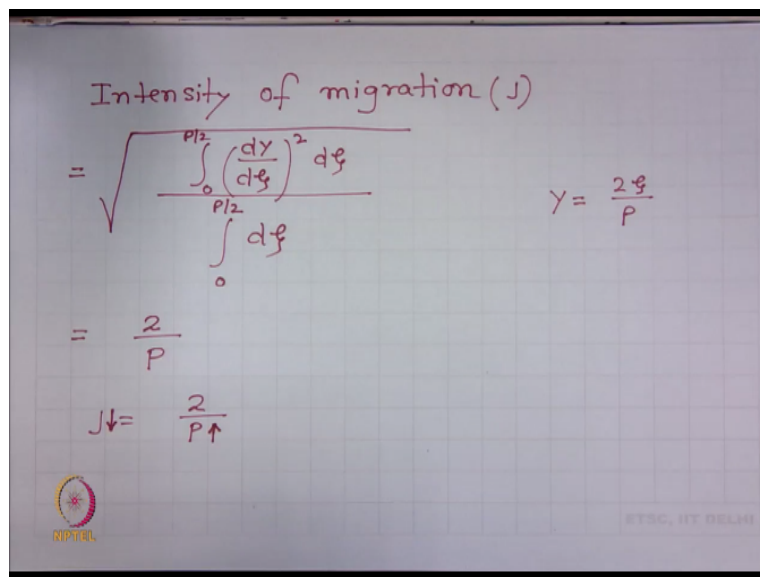 Intensity of migration (J)
= √ ∫₀^{P/2} (dY/dξ)² dξ / ∫₀^{P/2} dξ
Y = 2ξ/P
= 2/P
J↓ = 2/P↑
NPTEL
ETSC, IIT DELHI